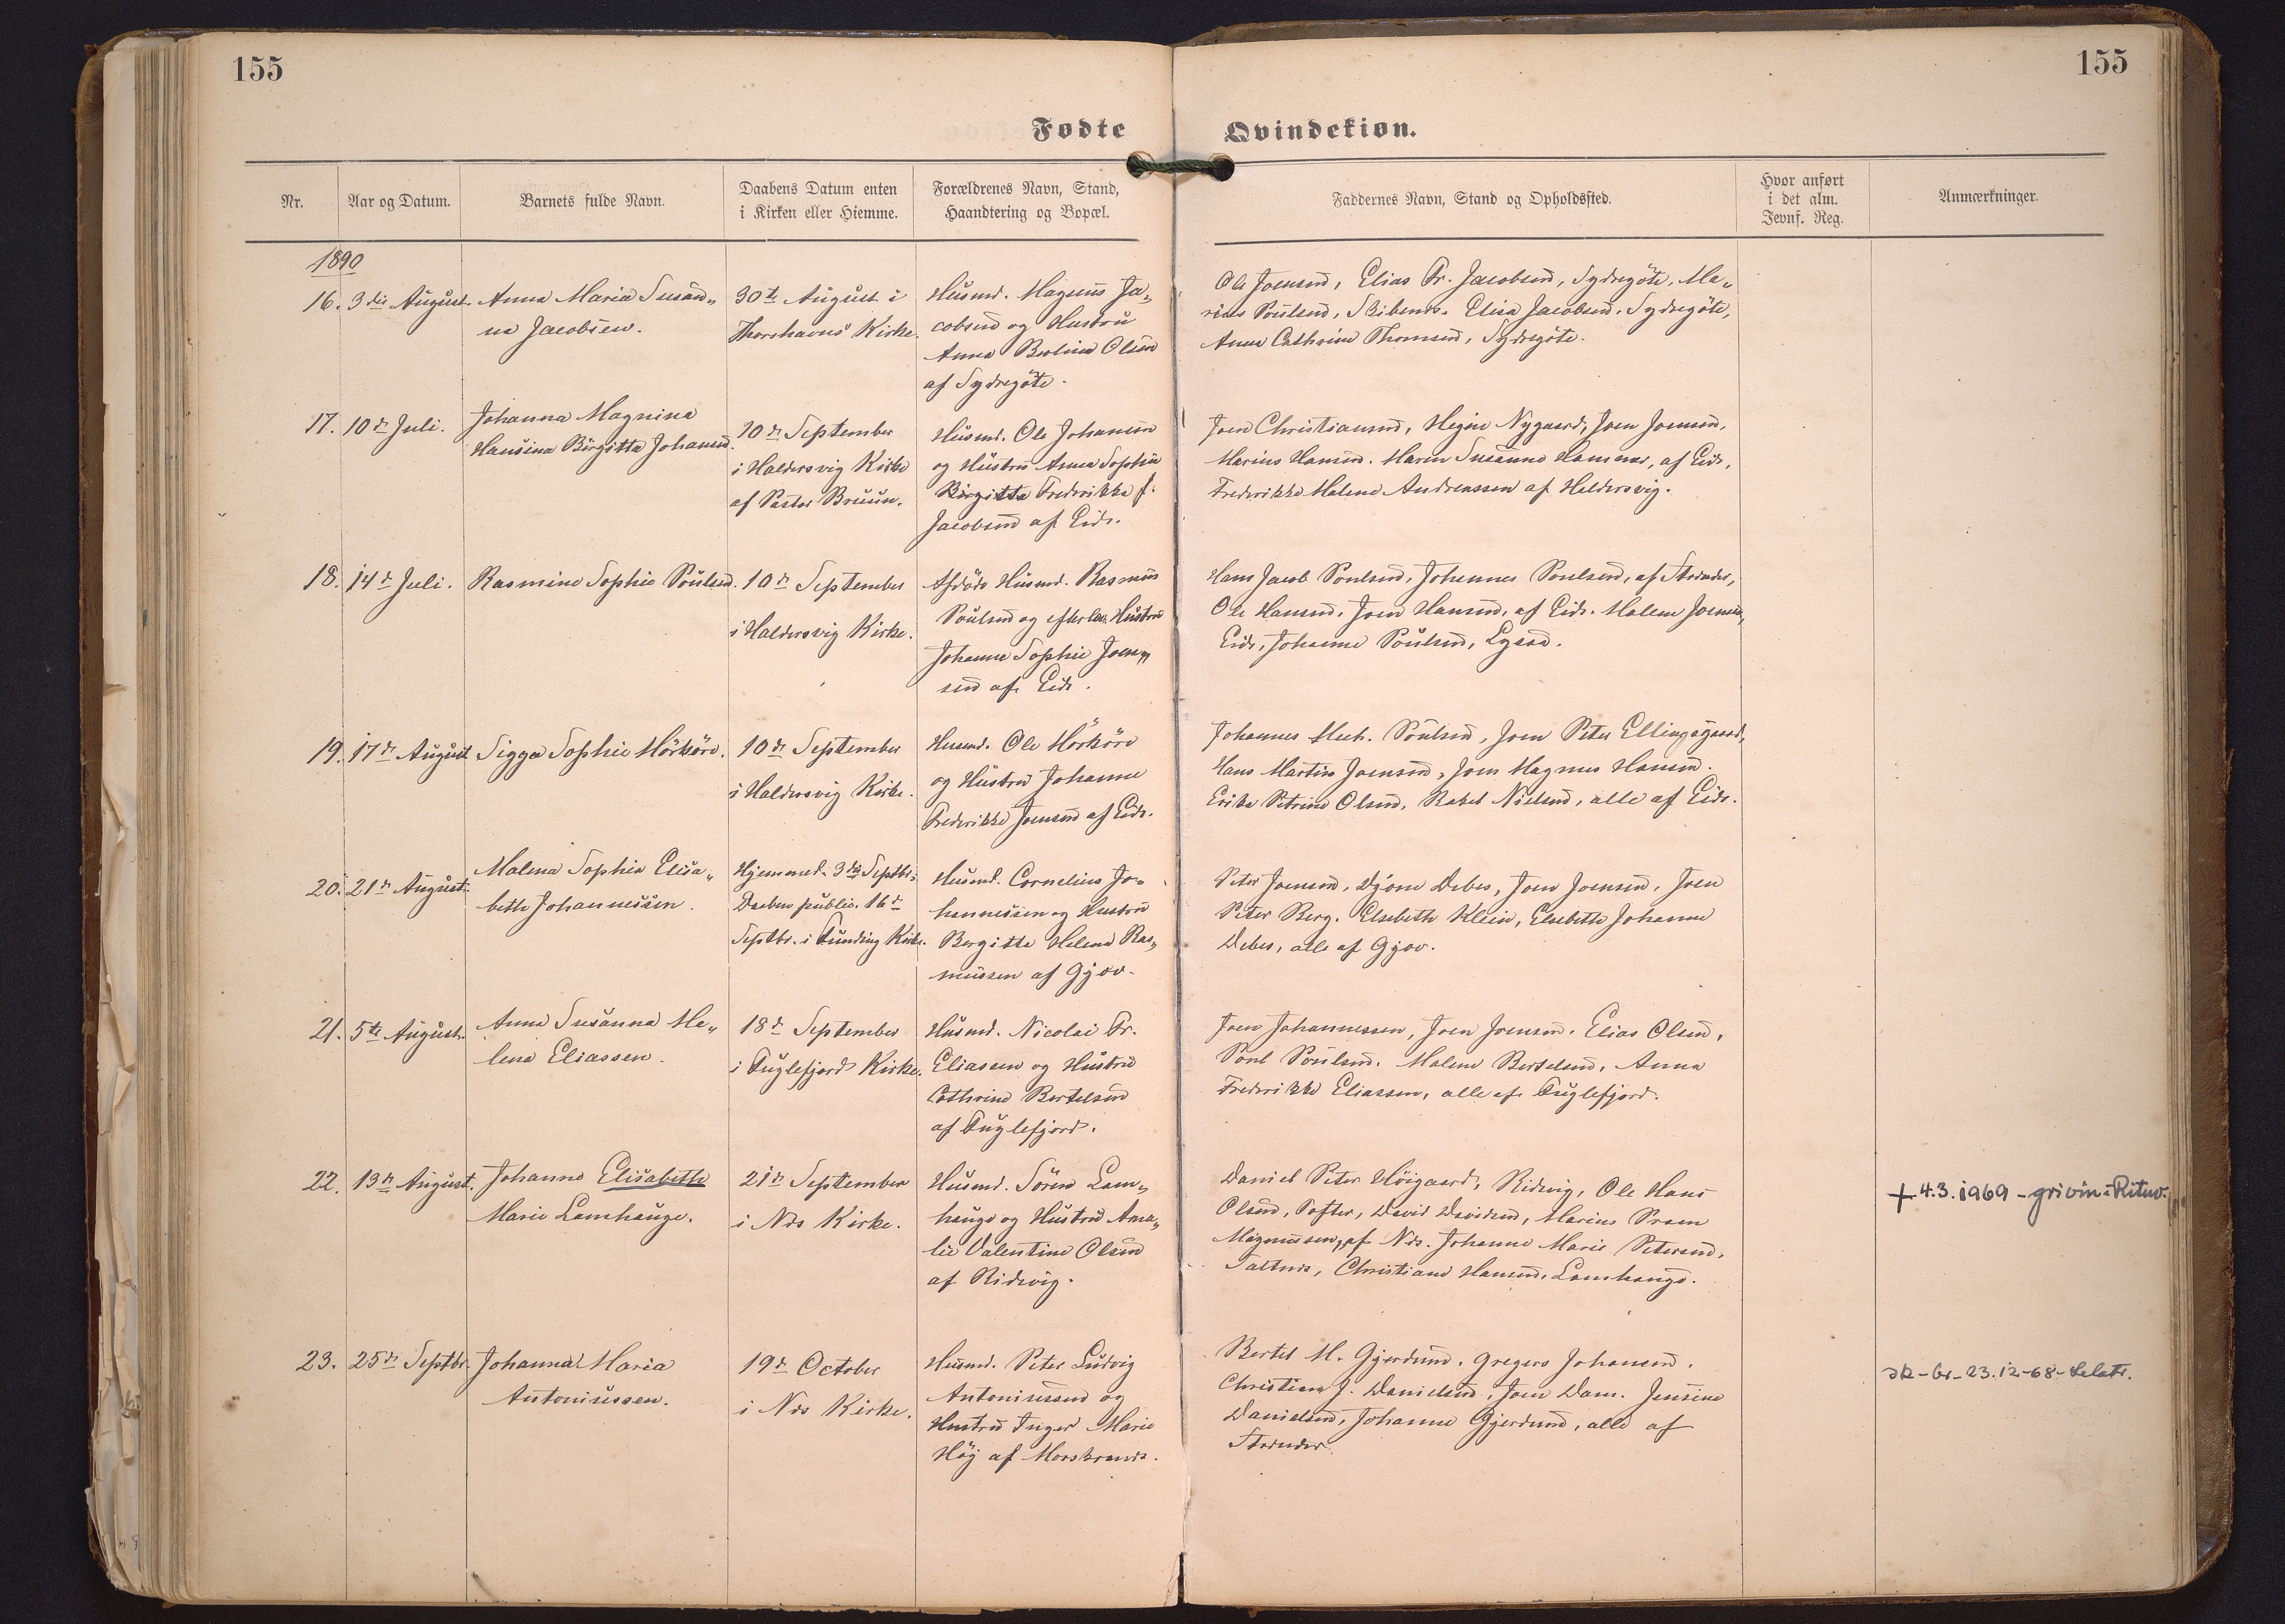 155
155
Fødte
Qvindekiøn.
Nr.
Aar og Datum.
Barnets fulde Navn.
Daabens Datum enten
i Kirken eller Hiemme.
Forældrenes Navn, Stand,
Haandtering og Bopæl.
Faddernes Navn, Stand og Opholdssted.
Hvor anført
i det alm.
Jevnf. Reg.
Anmærkninger.
1890
16.
3die August.
Anna Maria Susan„
na Jacobsen.
30te August i
Thorshavns Kirke.
Husmd. Magnus Ja„
cobsen og Hustru
Anna Olsen
af Sydregöte.
Ole Joensen, Elias Fr. Jacobsen, Sydregöte, Ma„
rius Poulsen, Elisa Jacobsen, Sydregöte,
Anna Cathrine Thomsen, Sydregöte.
17.
10de Juli.
Johanna Magnina
Hansina Birgitta Johansen.
10de September
i Haldersvig Kirke
af Pastor Bruun.
Husmd. Ole Johansen
og Hustru Anna Sophie
Birgitta Frederikke f.
Jacobsen af Eide.
Joen Christiansen, Nygaard, Joen Joensen,
Marius Hansen. Maren Susanne Hammer, af Eide,
Frederikke Malene Andreassen af Haldersvig.
18.
14de Juli.
Rasmine Sophie Poulsen.
10de September
i Haldersvig Kirke.
Afdöde Husmd. Rasmus
Poulsen og efterlev. Hustru
Johanne Sophie Joen„
sen af Eide.
Hans Jacob Poulsen, Johannes Poulsen, af Strender,
Ole Hansen, Joen Hansen, af Eide. Malene Joensen,
Eide, Johanne Poulsen,
19.
17de August
Sigga Sophie Mörköre.
10de September
i Haldersvig Kirke.
Husmd. Ole Mörköre
og Hustru Johanne
Frederikke Joensen af Eide.
Johannes Mich. Poulsen, Joen Peter Ellingsgaard,
Hans Martin Joensen, Joen Magnus Hansen.
Erika Petrine Olsen, Rakel Nielsen, alle af Eide.
20.
21de August.
Malena Sophia Elisa„
beth Johannessen.
Hjemmed. 3die Septbr.
Daaben public. 16de
Septbr. i Funding Kirke.
Husmd. Cornelius Jo„
hannessen og Hustru
Bergitte Helene Ras„
mussen af Gjov.
Peter Joensen, Djone Debes, Joen Joensen, Joen
Peter Berg. Elsebeth Klein, Elsebeth Johanne
Debes, alle af Gjov.
21.
5te August.
Anna Susanna Ma„
lena Eliassen.
18de September
i Fuglefjord Kirke.
Husmd. Nicolai Fr.
Eliassen og Hustru
Cathrine Bertelsen
af Fuglefjord.
Joen Johannessen, Joen Joensen, Elias Olsen,
Poul Poulsen. Malene Bertelsen, Anna
Frederikke Eliassen, alle af Fuglefjord.
22.
13de August.
Johanne Elisabeth
Marie Lamhauge.
21de September
i Næs Kirke.
Husmd. Sören Lam„
hauge og Hustru Ama„
lie Valentine Olsen
af Ridevig.
Daniel Peter Höigaard, Ridevig, Ole Hans
Olsen, Tofter, David Davidsen, Marius
Magnussen, af Næs. Johanne Marie Petersen,
Saltnes, Christiane Hansen, Lamhauge.
+ 4.3.1969 – grivin í Rituv.
23.
25de Septbr.
Johanna Maria
Antoniussen.
19de October
i Næs Kirke.
Husmd. Peter Ludvig
Antoniussen og
Hustru Inger Marie
Höj af Morskranes.
Bertel M. Gjerdum, Gregers Johansen,
Christian J. Danielsen, Joen Dam. Jensine
Danielsen, Johanne Gjerdum, alle af
Strender.
23.12-68- Selatr.